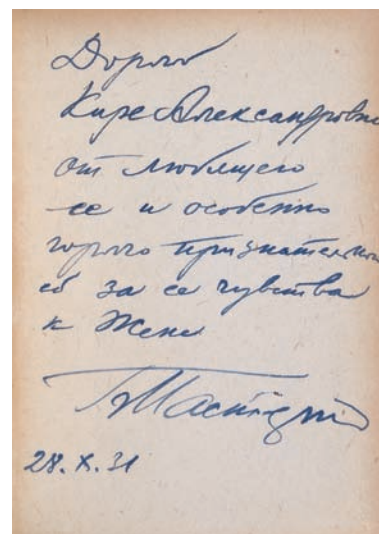 Дорогой
Кире Александровне
от любящего
ее и особенно
горячо признательного
ей за ее чувства
к Жене
28.X.31